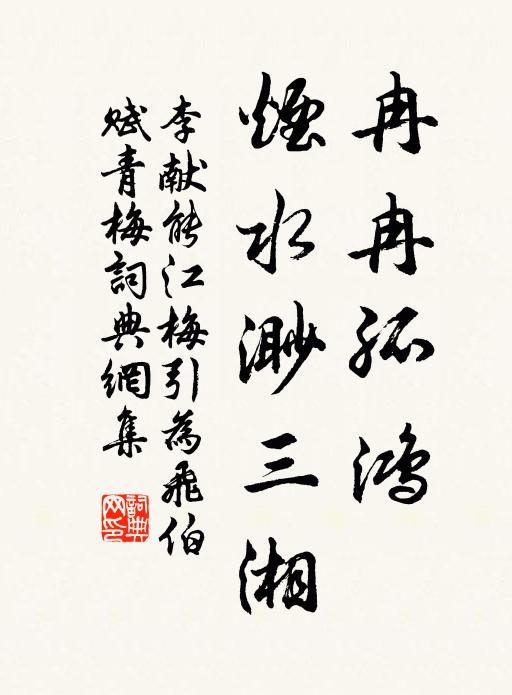 冉冉孤鸿
煙水渺三湘
李献能江梅引為飛伯
赋青梅詞典網集
詞典網印